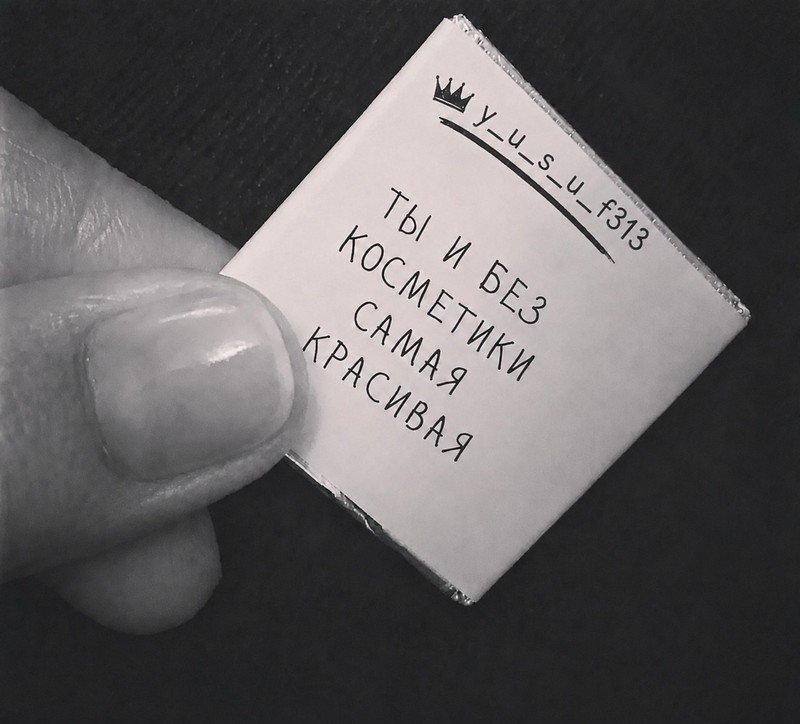 y_u_s_u_f313
ТЫ И БЕЗ
КОСМЕТИКИ
САМАЯ
КРАСИВАЯ